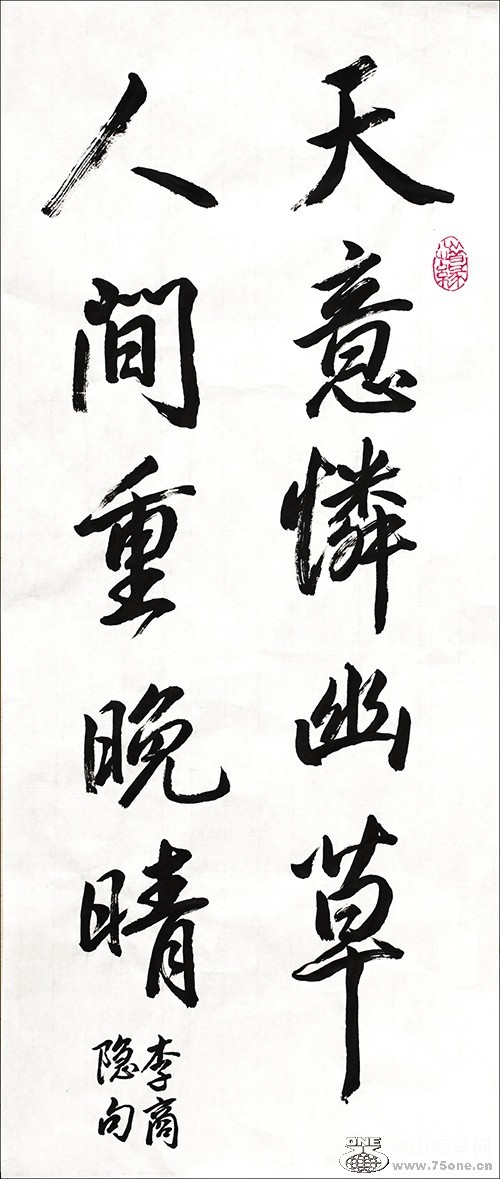 天意憐幽草
人間重晚晴
李商
隐句
ONE
www.75one.cn